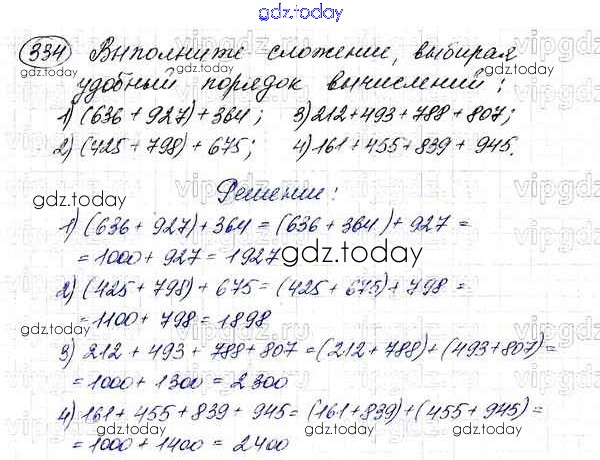 gdz.today
334 Выполните сложение, выбирая
gdz.today
удобный порядок вычислений:
1) (636 + 927) + 364; 3) 212 + 493 + 788 + 807;
2) (425 + 798) + 675; 4) 161 + 455 + 839 + 945.
gdz.today
gdz.today
Решение:
gdz.today
1) (636 + 927) + 364 = (636 + 364) + 927 =
= 1000 + 927 = 1927
gdz.today
2) (425 + 798) + 675 = (425 + 675) + 798 =
= 1100 + 798 = 1898
gdz.today
3) 212 + 493 + 788 + 807 = (212 + 788) + (493 + 807) =
= 1000 + 1300 = 2300
4) 161 + 455 + 839 + 945 = (161 + 839) + (455 + 945) =
= 1000 + 1400 = 2400
gdz.today
gdz.today